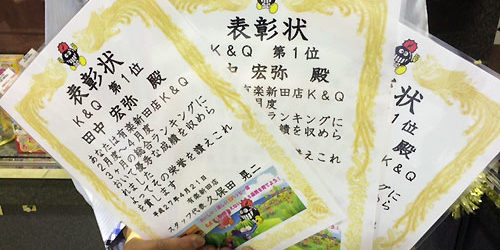 表彰状
K&Q 第1位
田中 宏弥 殿
あなたは有楽新田店K&Q
2月度~4月度
3ヶ月の総合ランキングに
おいて優秀な成績を収めら
れました
よってこの栄誉を讃えこれ
を賞します
平成27年6月21日
有楽新田店
久保田 晃二
表彰状
K&Q 第1位
中 宏弥 殿
有楽新田店K&Q
月度
ランキングに
績を収めら
讃えこれ
状
1位
殿
K&Q
に
ら
これ